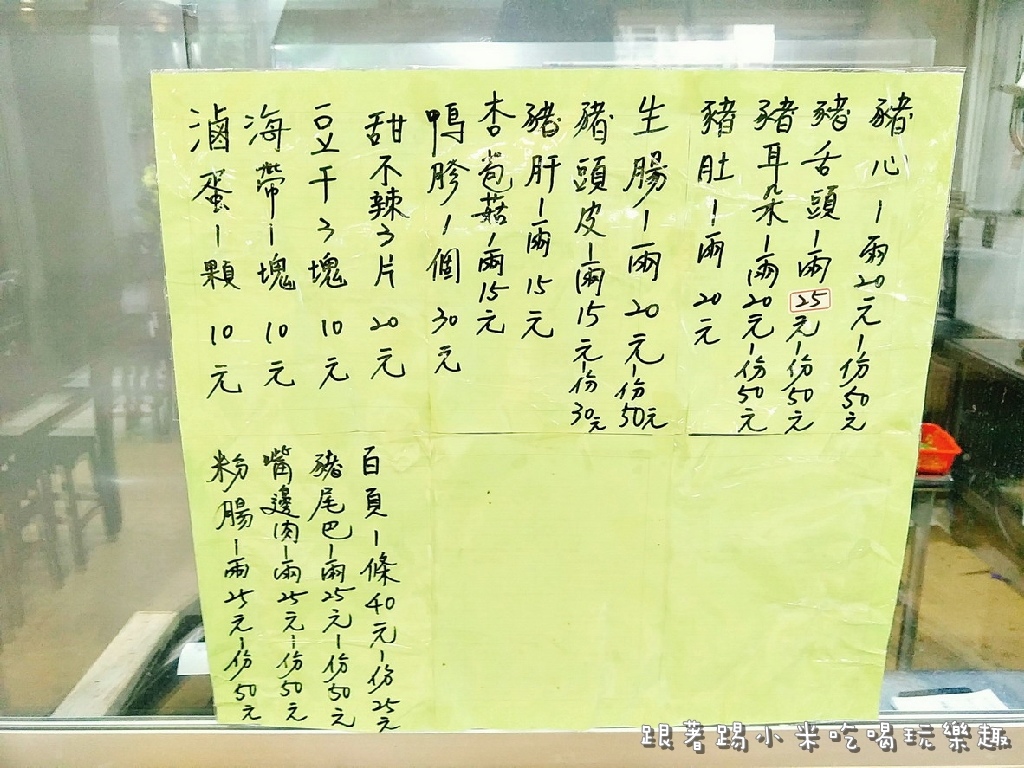 豬心一兩20元一份50元
豬舌頭一兩25元一份50元
豬耳朵一兩20元一份50元
豬肚一兩20元
生腸一兩20元一份50元
豬頭皮一兩15元一份30元
豬肝一兩15元
杏苞菇一兩15元
鴨胗1個30元
甜不辣3片20元
豆干3塊10元
海帶一塊10元
滷蛋一顆10元
百頁一條40元一份25元
豬尾巴一兩25元一份50元
嘴邊肉一兩25元一份50元
粉腸一兩25元一份50元
跟著踢小米吃喝玩樂趣